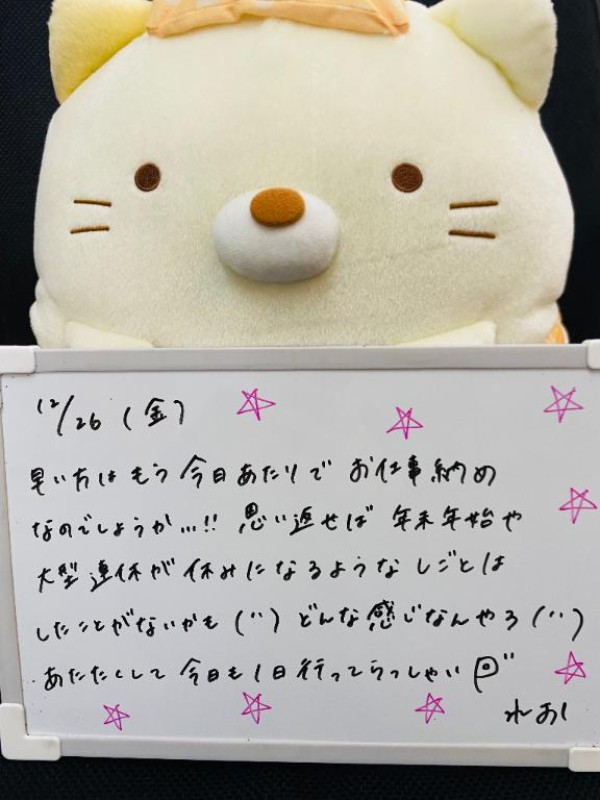 12/26 (金)
早い方はもう今日あたりでお仕事納め
なのでしょうか...!! 思い返せば年末年始や
大型連休が休みになるようなしごとは
したことがないかも(¨) どんな感じなんやろ(¨)
あたたくして今日も1日行ってらっしゃい
れおし